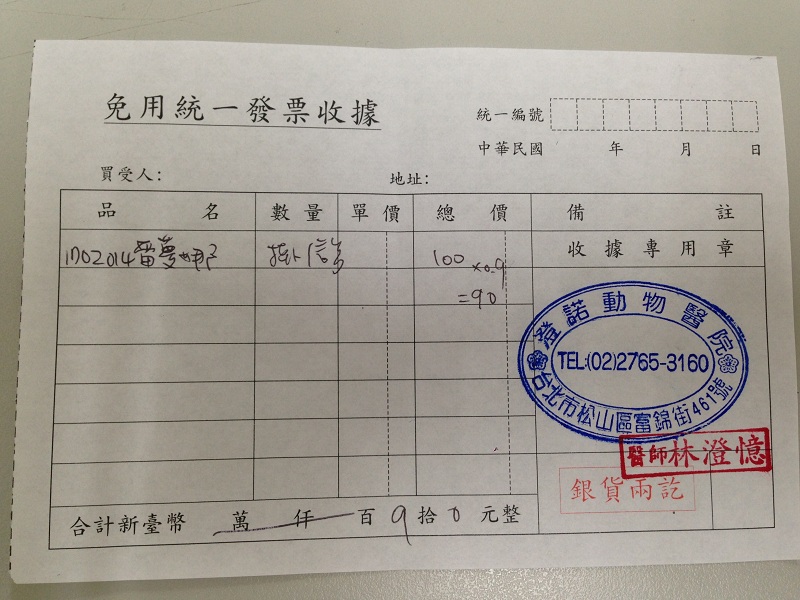 免用統一發票收據
統一編號
中華民國 年 月 日
買受人: 地址:
品名 數量 單價 總價 備註
收據專用章
1702014雷夢娜 掛信 100
×0.9
=90
澄諾動物醫院
TEL:(02)2765-3160
台北市松山區富錦街461號
醫師林澄憶
銀貨兩訖
合計新臺幣 萬 仟 百 9 拾 0 元整